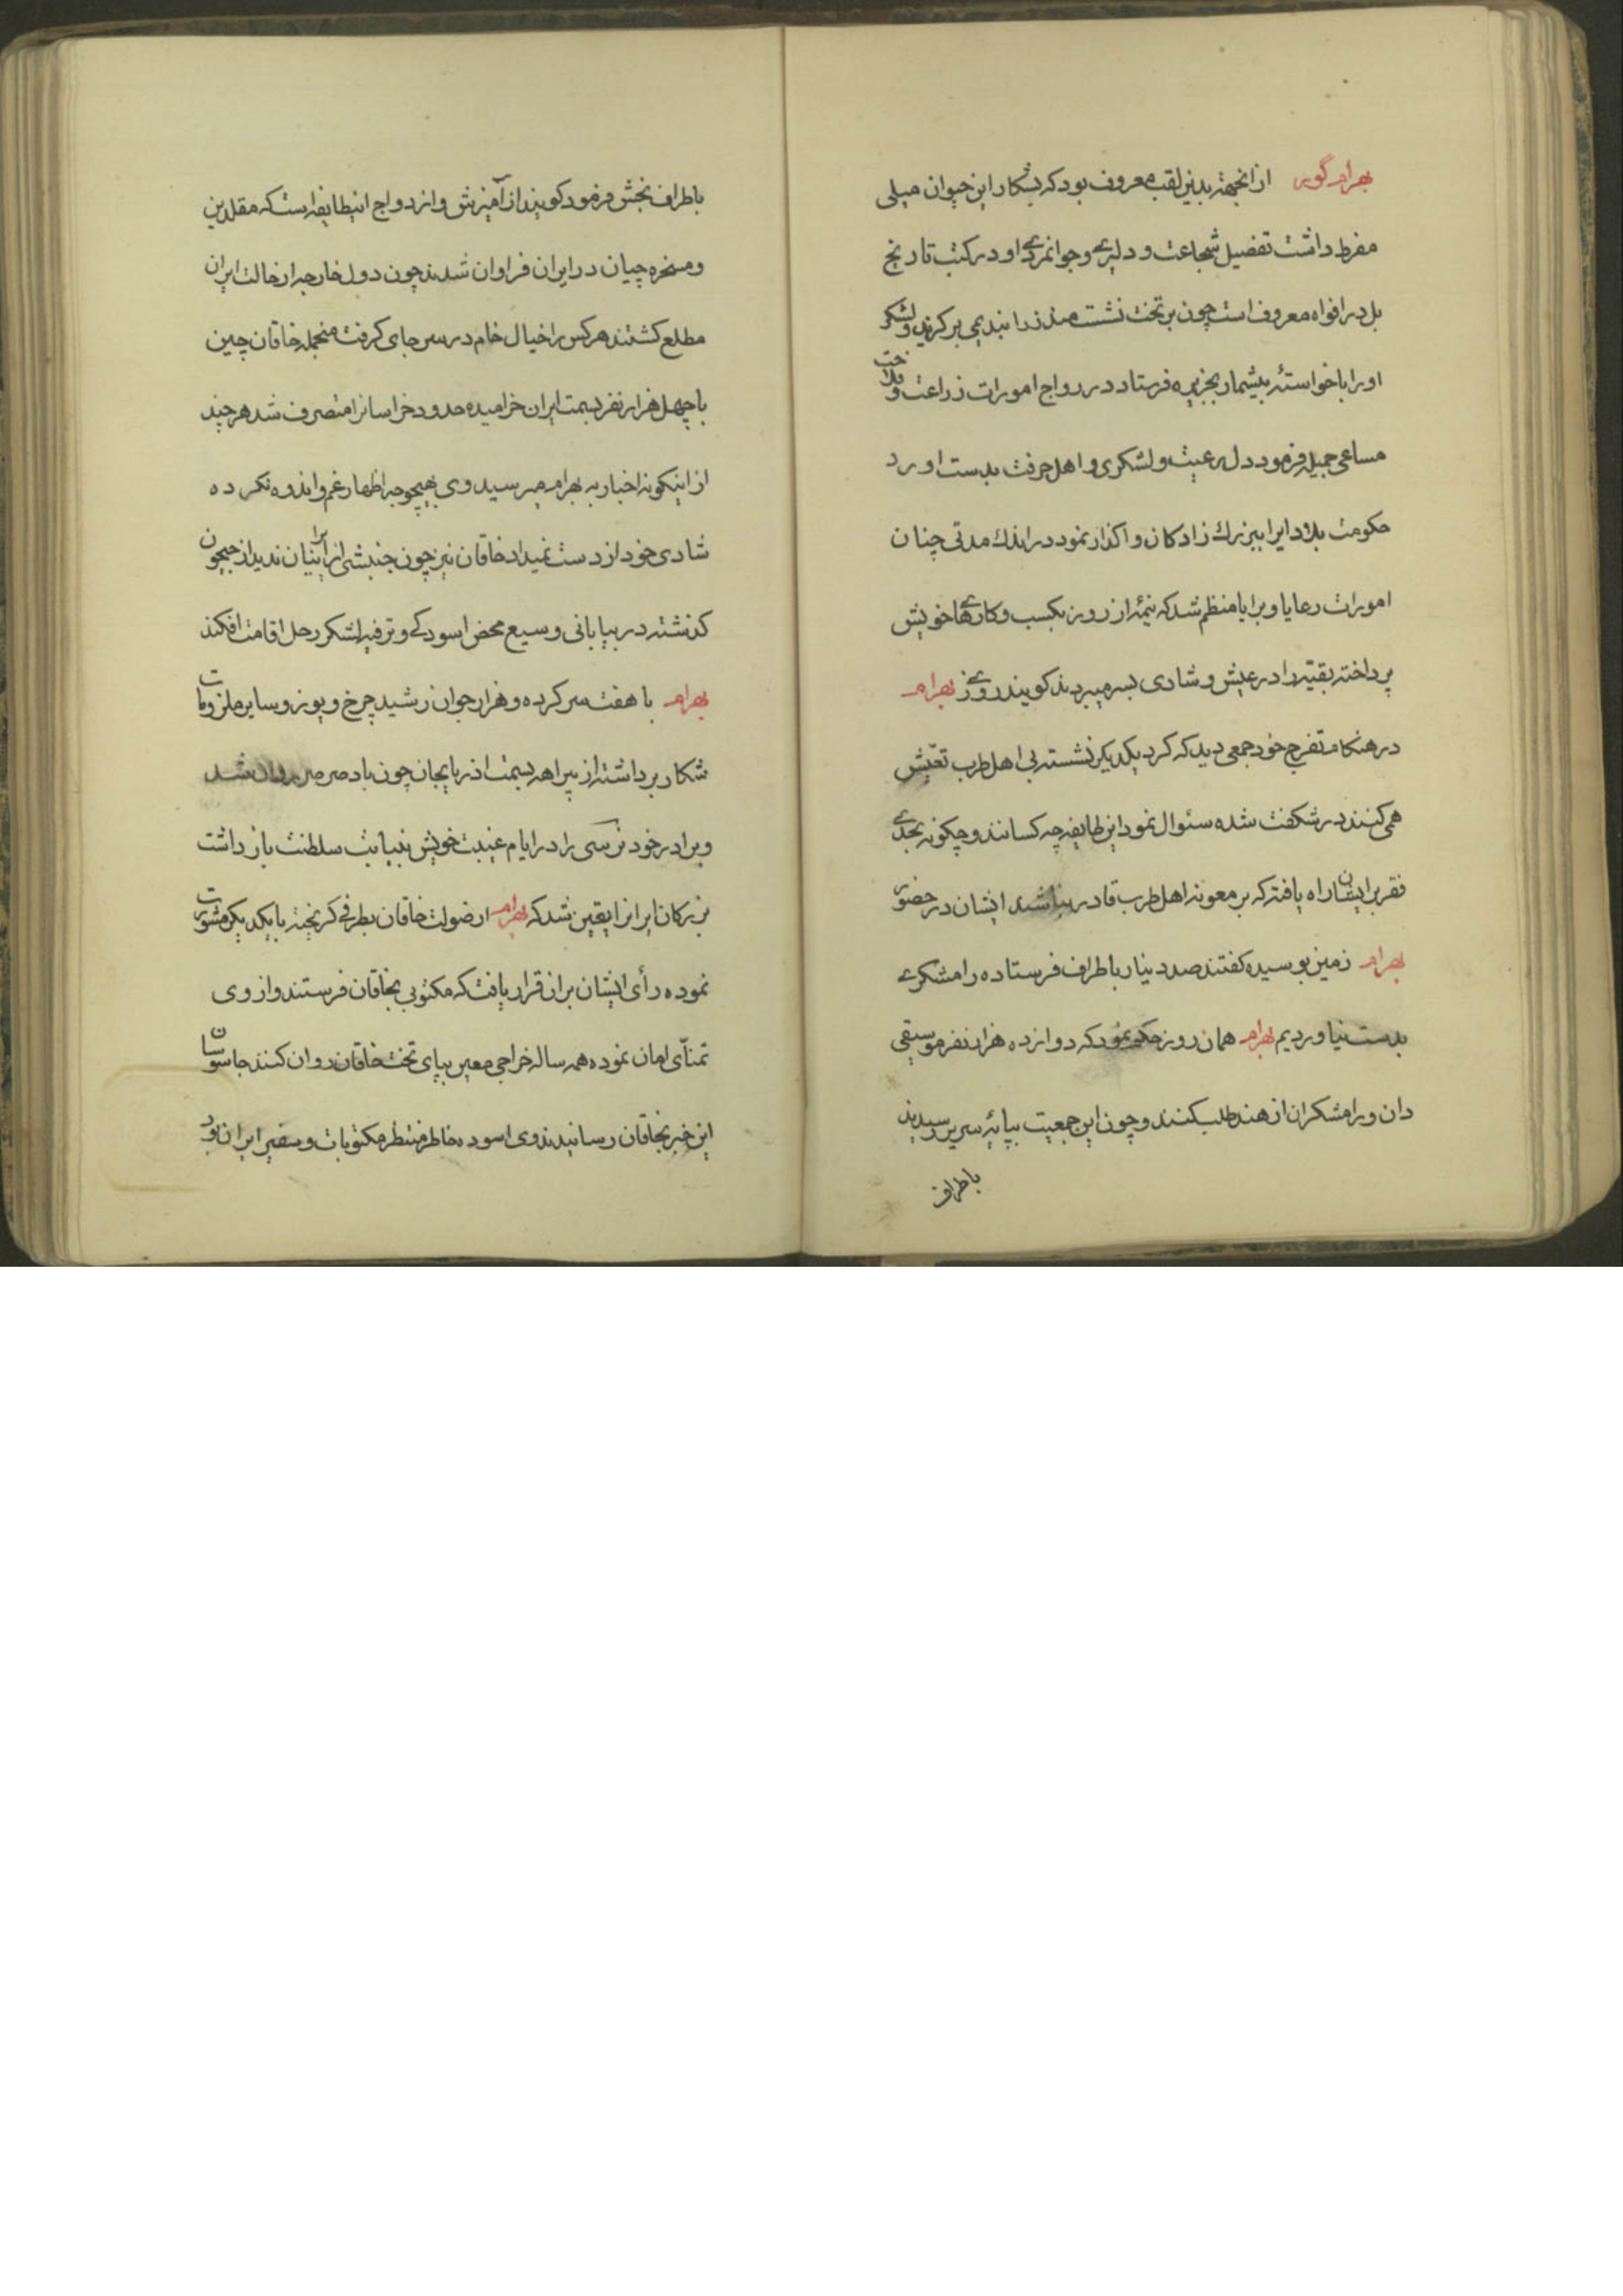 بهرام گور از انجهة بدین لقب معروف بود که بشکار این حیوان میلی
مفرط داشت تفضیل شجاعت و دلیرے و جوانمردے او در کتب تاریخ
بل در افواه معروف است چون بر تخت نشست منذر را بندیمی بر کزید و لشکر
او را با خواستۀ بیشمار بجزیره فرستاد در رواج امورات زراعت و فلاحت
مساعی جمیله فرمود دل رعیت و لشکری و اهل حرفت بدست اورد
حکومت بلاد ایرا ببزرك زادکان واکذار نمود در اندك مدتی چنان
امورات رعایا و برایا منظم شد که نیمۀ از روز بکسب و کارهاے خویش
پرداخته بقیّه را در عیش و شادی بسر میبردند کویند روزے بهرام
در هنکام تفرج خود جمعی دید که کرد یکدیکر نشسته بی اهل طرب تعّیش
همی کنند در شکفت شده سئوال نمود این طایفه چه کسانند و چکونه بحدے
فقر بر ایشان راه یافته که بر معونه اهل طرب قادر نباشند ایشان در حضور
بهرام زمین بوسیده کفتند صد دینار باطراف فرستاده رامشکرے
بدست نیاوردیم بهرام همان روز حکم نمود که دوازده هزار نفر موسیقی
دان و رامشکران از هند طلب کنند و چون این جمعیت بپایۀ سریر رسیدند
باطراف
باطراف بخش فرمود کویند از آمیزش و ازدواج اینطایفه است که مقلدین
و مسخره چیان در ایران فراوان شدند چون دول خارجه از حالت ایران
مطلع کشتند هر کس را خیال خام در سر جای کرفت منجمله خاقان چین
با چهل هزار نفر بسمت ایران خرامیده حدود خراسانرا متصرف شد هر چند
از اینکونه اخبار به بهرام میرسید وی بهیچوجه اظهار غم و اندوه نکرده
شادی خود از دست نمیداد خاقان نیز چون جنبشی از ایرانیان ندید از جیحون
کذشته در بیابانی وسیع محض اسودکے و ترفیه لشکر رحل اقامت افکند
بهرام با هفت سر کرده و هزار جوان رشید چرخ و یوز و سایر ملزومات
شکار برداشته از بیراهه بسمت اذربایجان چون باد صرصر روان شد
و برادر خود نرسی را در ایام غیبت خویش بنیابت سلطنت باز داشت
بزرکان ایرانرا یقین شد که بهرام از ضولت خاقان بطرفی کریخته با یکدیکر مشورت
نموده رأی ایشان بر ان قرار یافت که مکتوبی بخاقان فرستند و از وی
تمنّای امان نموده همه ساله خراجی معین بپای تخت خاقان روان کنند جاسوسان
این خبر بخاقان رسانیدند وی اسوده خاطر منتظر مکتوبات و سفیر ایران بود